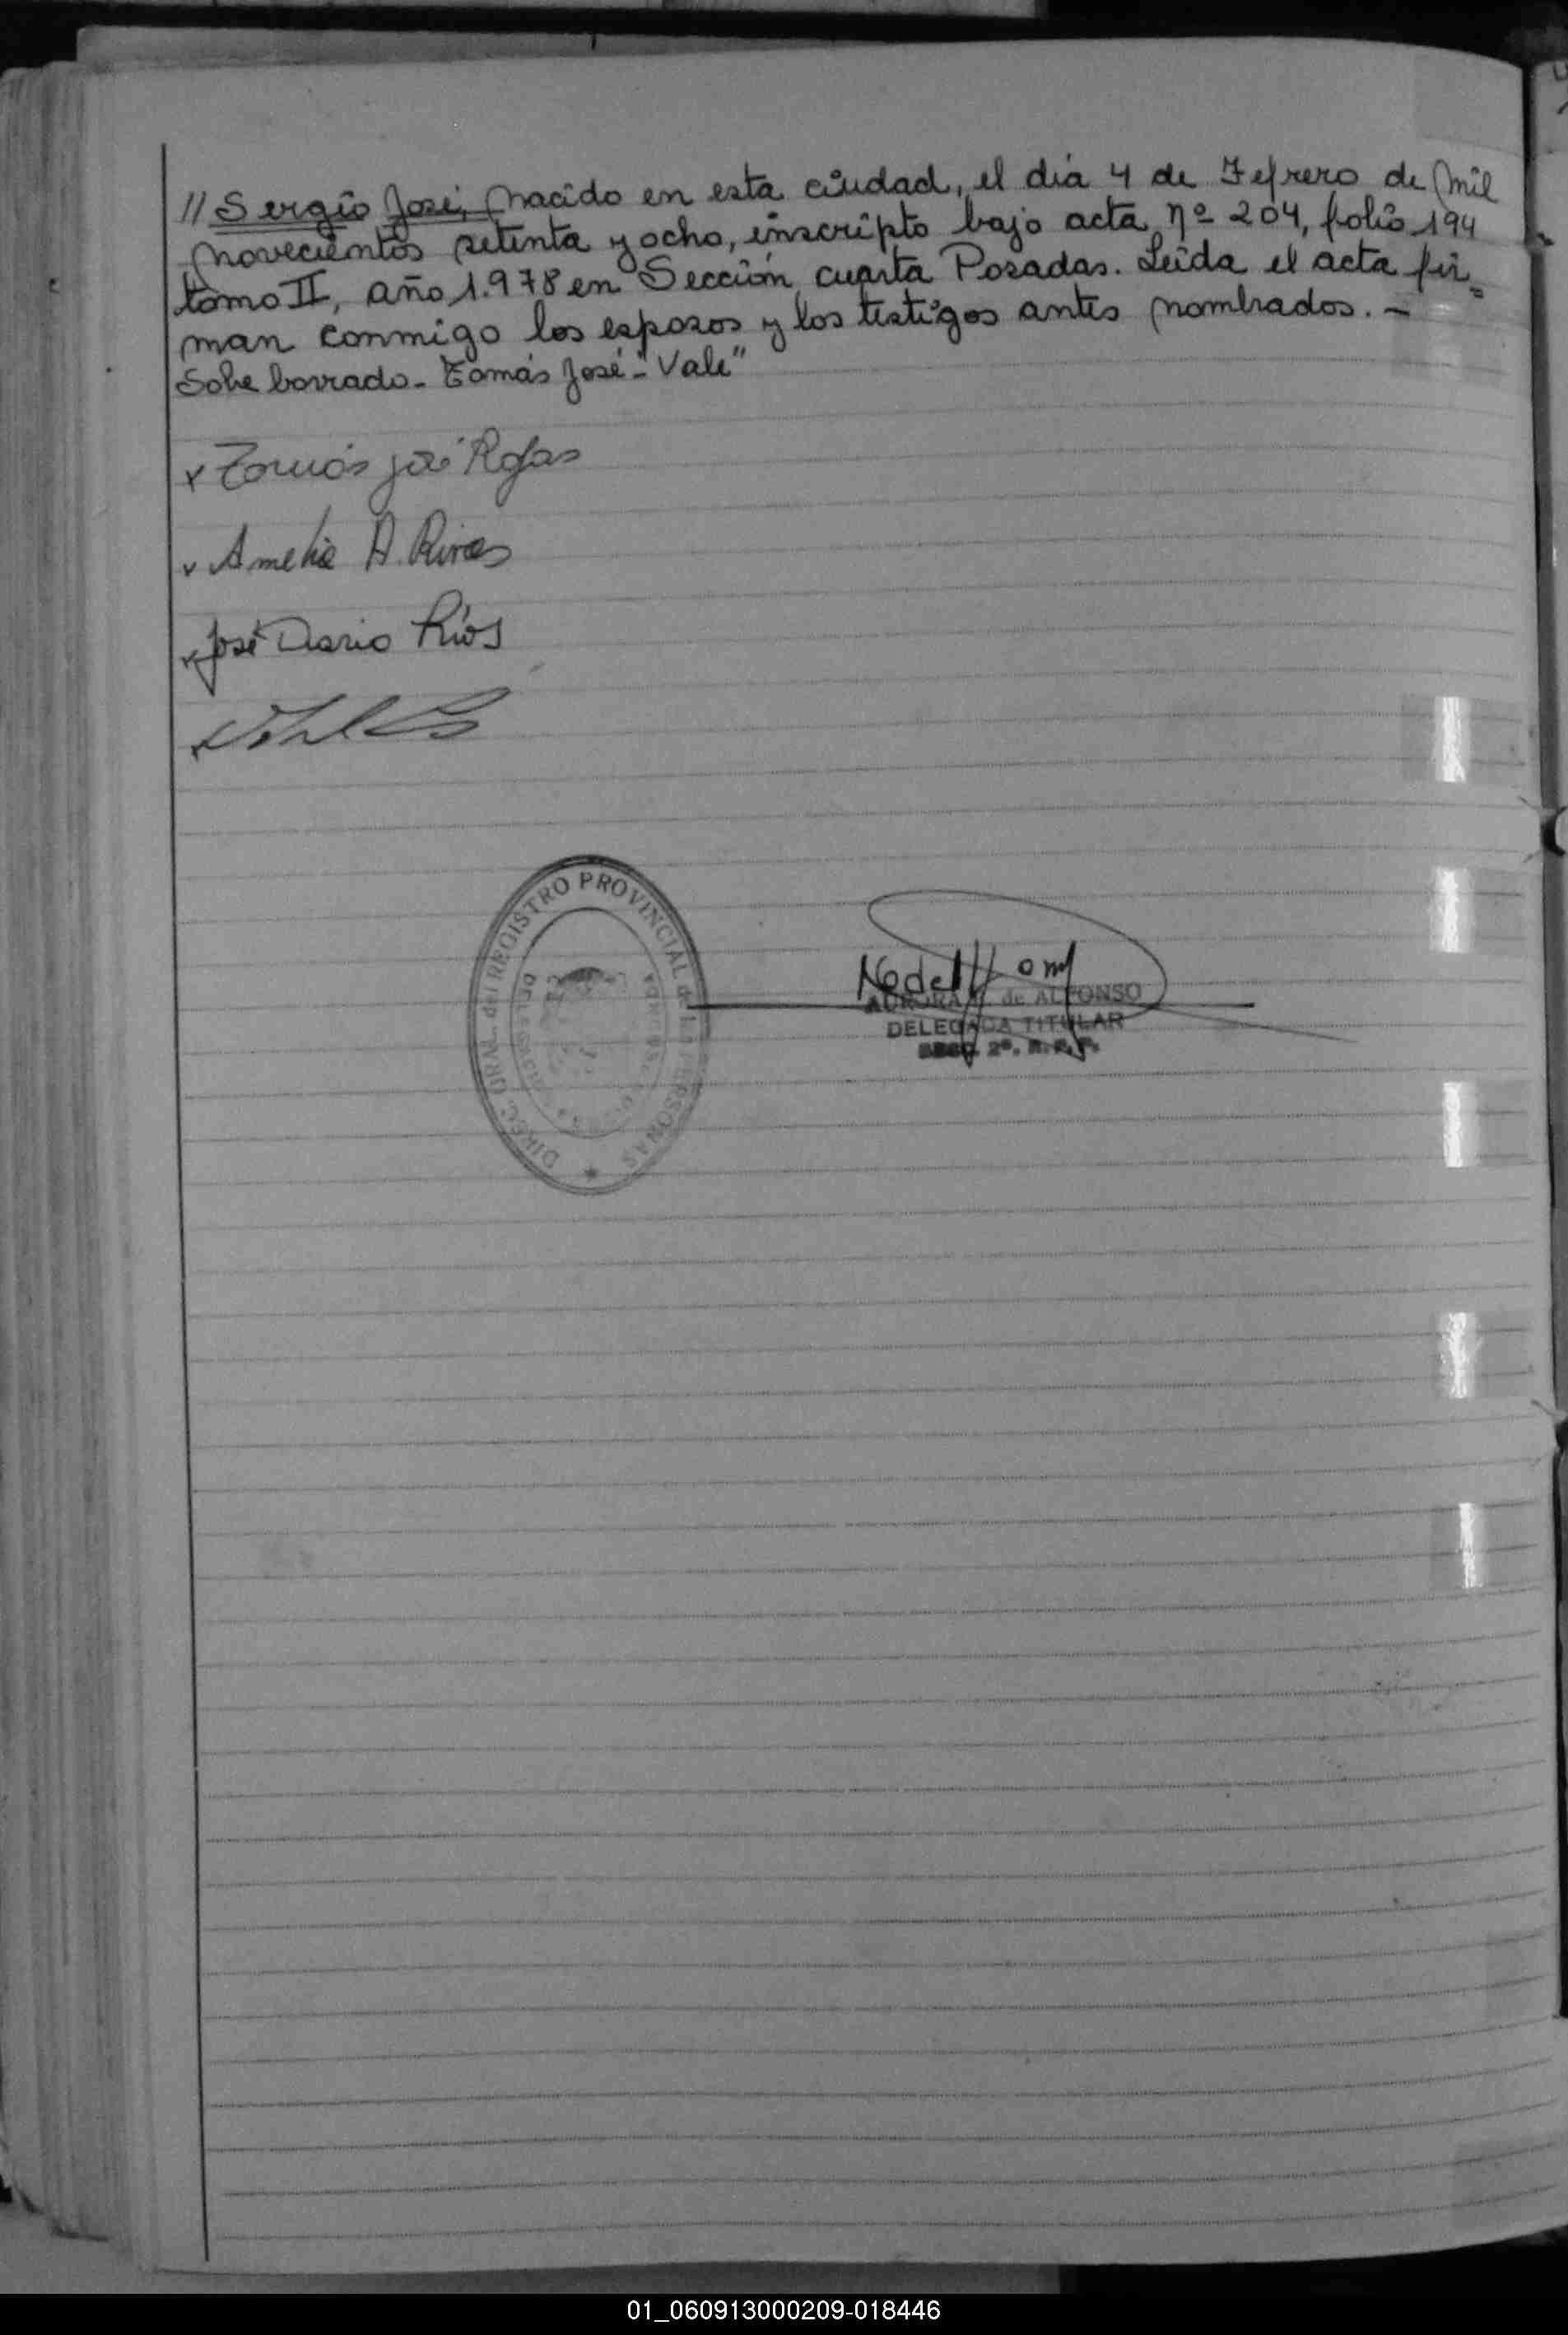 // Sergio José, nacido en esta ciudad, el día 4 de Febrero de mil
novecientos setenta y ocho, inscripto bajo acta nº 204, folio 194
tomo II, año 1.978 en Sección cuarta Posadas. Leída el acta fir=
man conmigo los esposos y los testigos antes nombrados. -
Sobe borrado - Tomás José - Vale"
x Tomás José Rojas
x Amelia A. Rivas
x José Dario Ríos
DIREC. GRAL. del REGISTRO PROVINCIAL de las PERSONAS
AURORA de ALFONSO
DELEGADA TITULAR
SECC. 2ª. R.P.P.
01_060913000209-018446